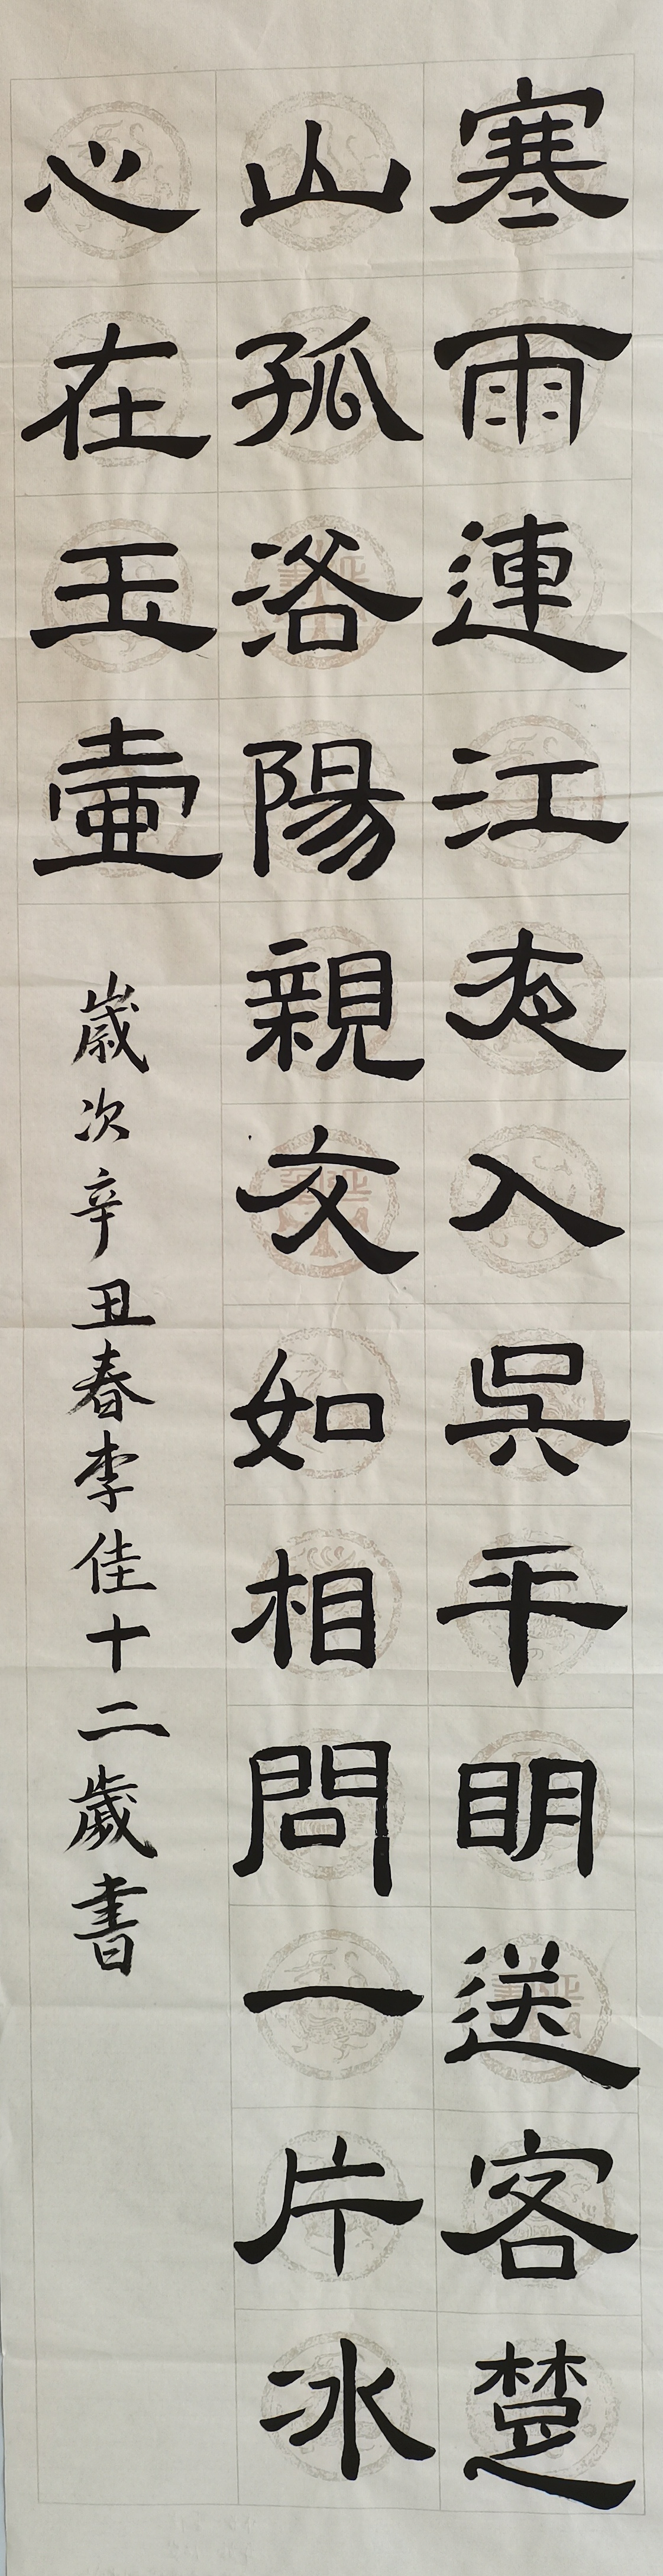 寒雨連江夜入吳平明送客楚
山孤洛陽親友如相問一片冰
心在玉壺
歲次辛丑春李佳十二歲書